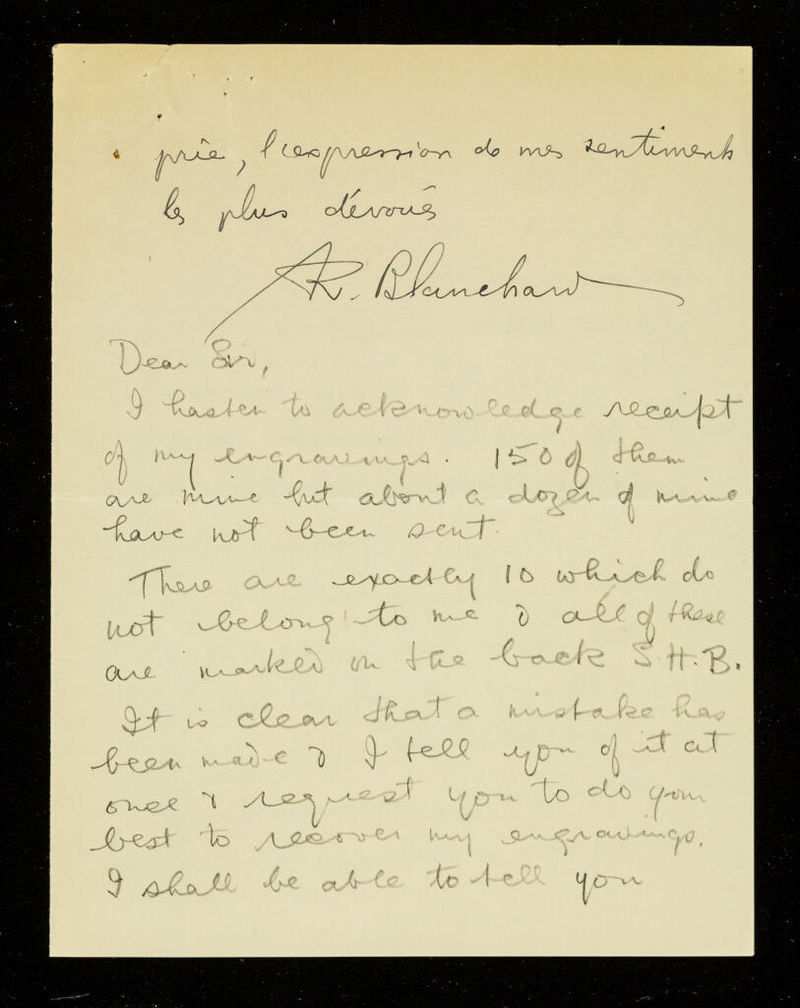 prie, l'expression de mes sentiments
les plus dévoués
R. Blanchard
Dear Sir,
I hasten to acknowledge receipt
of my engravings. 150 of them
are mine but about a dozen of mine
have not been sent.
There are exactly 10 which do
not belong to me & all of these
are marked on the back S.H.B.
It is clear that a mistake has
been made & I tell you of it at
once & request you to do your
best to recover my engravings.
I shall be able to tell you